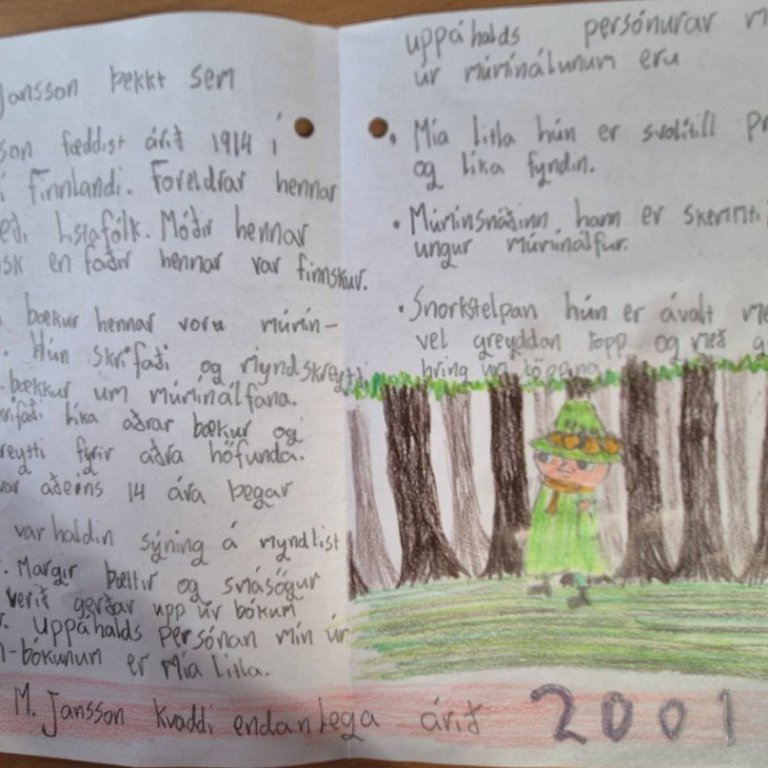 Jansson þekkt sem
son fæddist árið 1914 í
í Finnlandi. Foreldrar hennar
eði listafólk. Móðir hennar
sk en faðir hennar var finnskur.
bækur hennar voru múmín-
Hún skrifaði og myndskreytti
bækkur um múmínálfana.
krifaði líka aðrar bækur og
reytti fyrir aðra höfunda.
var aðeins 14 ára þegar
var haldin sýning á myndlist
. Margir þættir og smásögur
verið gerðar upp úr bókum
r. Uppáhalds persónan mín úr
n-bókunum er Mia litla.
M. Jansson kvaddi endanlega árið 2001
uppáhalds persónurar m
úr múmínálunum eru
• Mía litla hún er svolítill pr
og líka fyndin.
• Múmínsnáðinn hann er skemmti
ungur múmínálfur.
• Snorkstelpan hún er ávalt me
vel greyddan topp og með g
hring um löppana